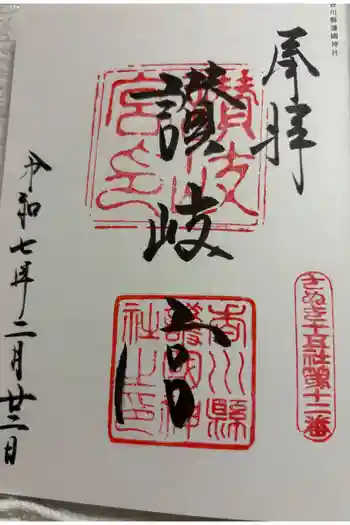 香川縣護國神社
奉拝
讃岐宮
讃岐宮印
香川縣護國神社之印
さぬき十五社第十二番
令和七年二月廿二日